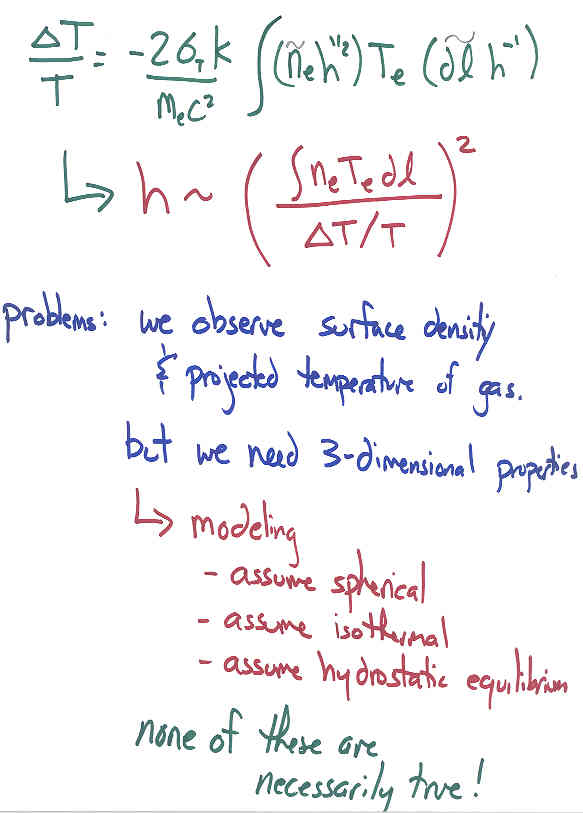 ΔT/T = -2σ_T k / m_e c² ∫(ñ_e h^{1/2}) T_e (d̃l h^{-1})
↳ h ~ (∫n_e T_e dl / ΔT/T)²
problems: we observe surface density
& projected temperature of gas.
but we need 3-dimensional properties
↳ modeling
- assume spherical
- assume isothermal
- assume hydrostatic equilibrium
none of these are
necessarily true!